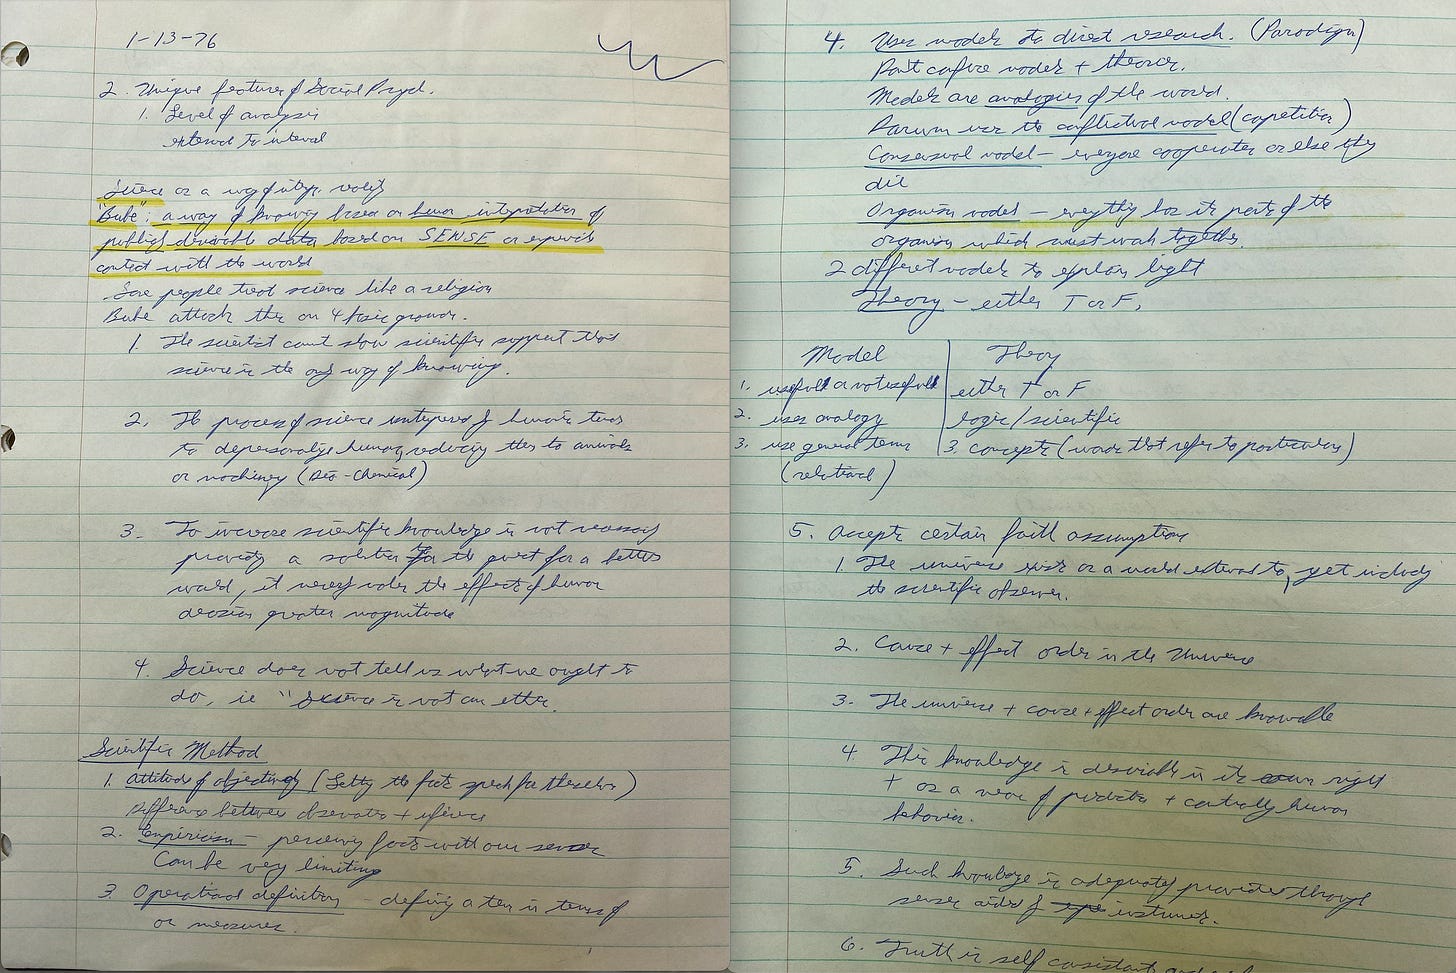 1-13-76
2. Unique features of Social Psych.
1. Level of analysis
external to internal
Science as a way of interp. reality
"Bube": a way of knowing based on human interpretation of
publicly desirable data based on SENSE or experience
contact with the world
Some people treat science like a religion
Bube attack this on 4 basic grounds.
1. The scientist cannot show scientific support that
science is the only way of knowing.
2. The process of science interpreted of humanistic terms
to depersonalize human, reducing them to animals
or machinery (Bio-Chemical)
3. To increase scientific knowledge is not necessarily
providing a solution for the quest for a better
world, it merely makes the effects of human
decision greater magnitude
4. Science does not tell us what we ought to
do, ie "Science is not an ethic.
Scientific Method
1. attitude of objectivity (Letting the facts speak for themselves)
Difference between observation + inference
2. Empiricism - perceiving facts with our senses
Can be very limiting
3. Operational definitions - defining a term in terms of
or measures.
4. Uses models to direct research. (Paradigm)
Don't confuse models + theories.
Models are analogies of the world.
Darwin was the conflictual model (competition)
Consensual model - everyone cooperates or else they
die
Organism model - everything has its part of the
organism which must work together.
2 different models to explain light
Theory - either T or F.
Model Theory
1. usefull or not usefull either T or F
2. uses analogy logic/scientific
3. use general terms 3. concepts (words that refer to particulars)
(relational)
5. Accepts certain faith assumptions
1. The universe exists as a world external to, yet including
the scientific observer.
2. Cause + effect order in the Universe
3. The universe + cause + effect order are knowable
4. This knowledge is desirable in its own right
+ as a means of predicting + controlling human
behavior.
5. Such knowledge is adequately provided through
senses aided by instruments.
6. Truth is self consistent and